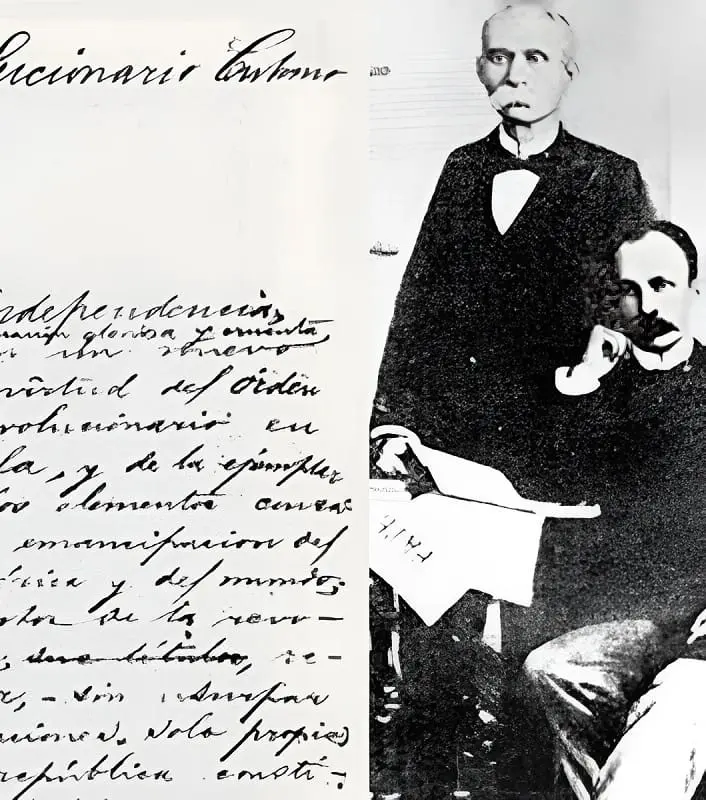 lucionario Cubano
independencia,
ración gloriosa y cruenta,
un nuevo
virtud del órden
volucionario en
la, y de la ejemplar
los elementos consa-
emancipacion del
érica y del mundo;
de la revo-
re-
sin usurpar
aciones solo propias
república consti-